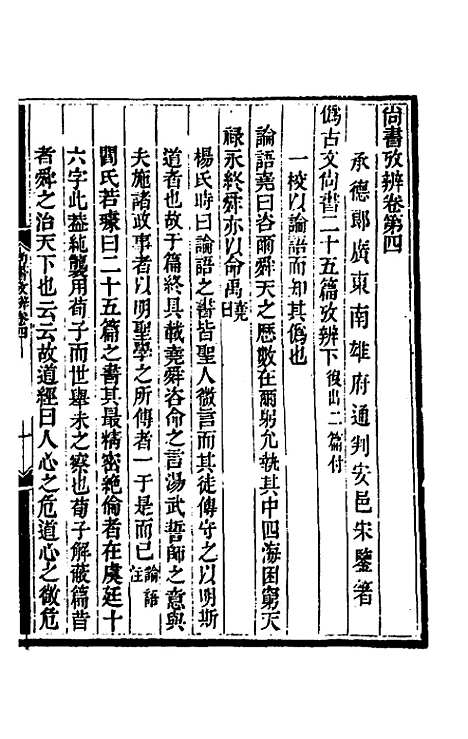 尚書攷辨卷第四
承德郎廣東南雄府通判安邑宋鑒著
僞古文尚書二十五篇攷辨下復出二篇付
一校以論語而知其僞也
論語堯曰咨爾舜天之歷數在爾躬允執其中四海困窮天
祿永終舜亦以命禹堯曰
楊氏時曰論語之書皆聖人微言而其徒傳守之以明斯
道者也故于篇終具載堯舜咨命之言湯武誓師之意與
夫施諸政事者以明聖學之所傳者一于是而已論語注
閻氏若璩曰二十五篇之書其最精密絶倫者在虞廷十
六字此蓋純襲用荀子而世舉未之察也荀子解蔽篇昔
者舜之治天下也云云故道經曰人心之危道心之微危
尚書攷辨卷四
一